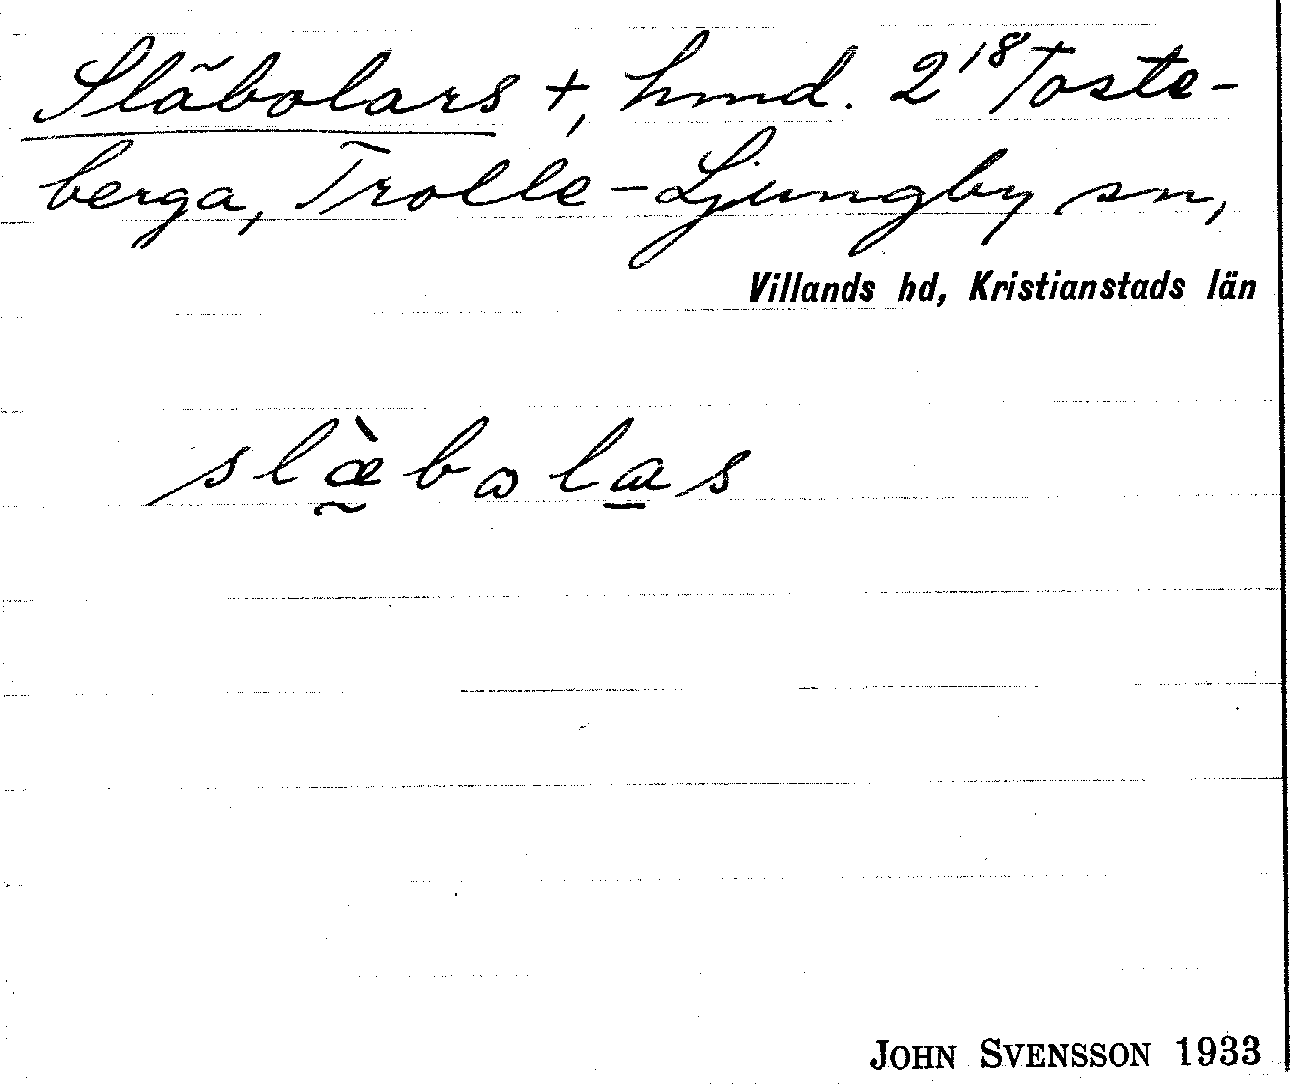 Släbolars †, hmd. 2¹⁸ Toste-
berga, Trolle-Ljungby sn,
Villands hd, Kristianstads län
slæ̀bolas
JOHN SVENSSON 1933